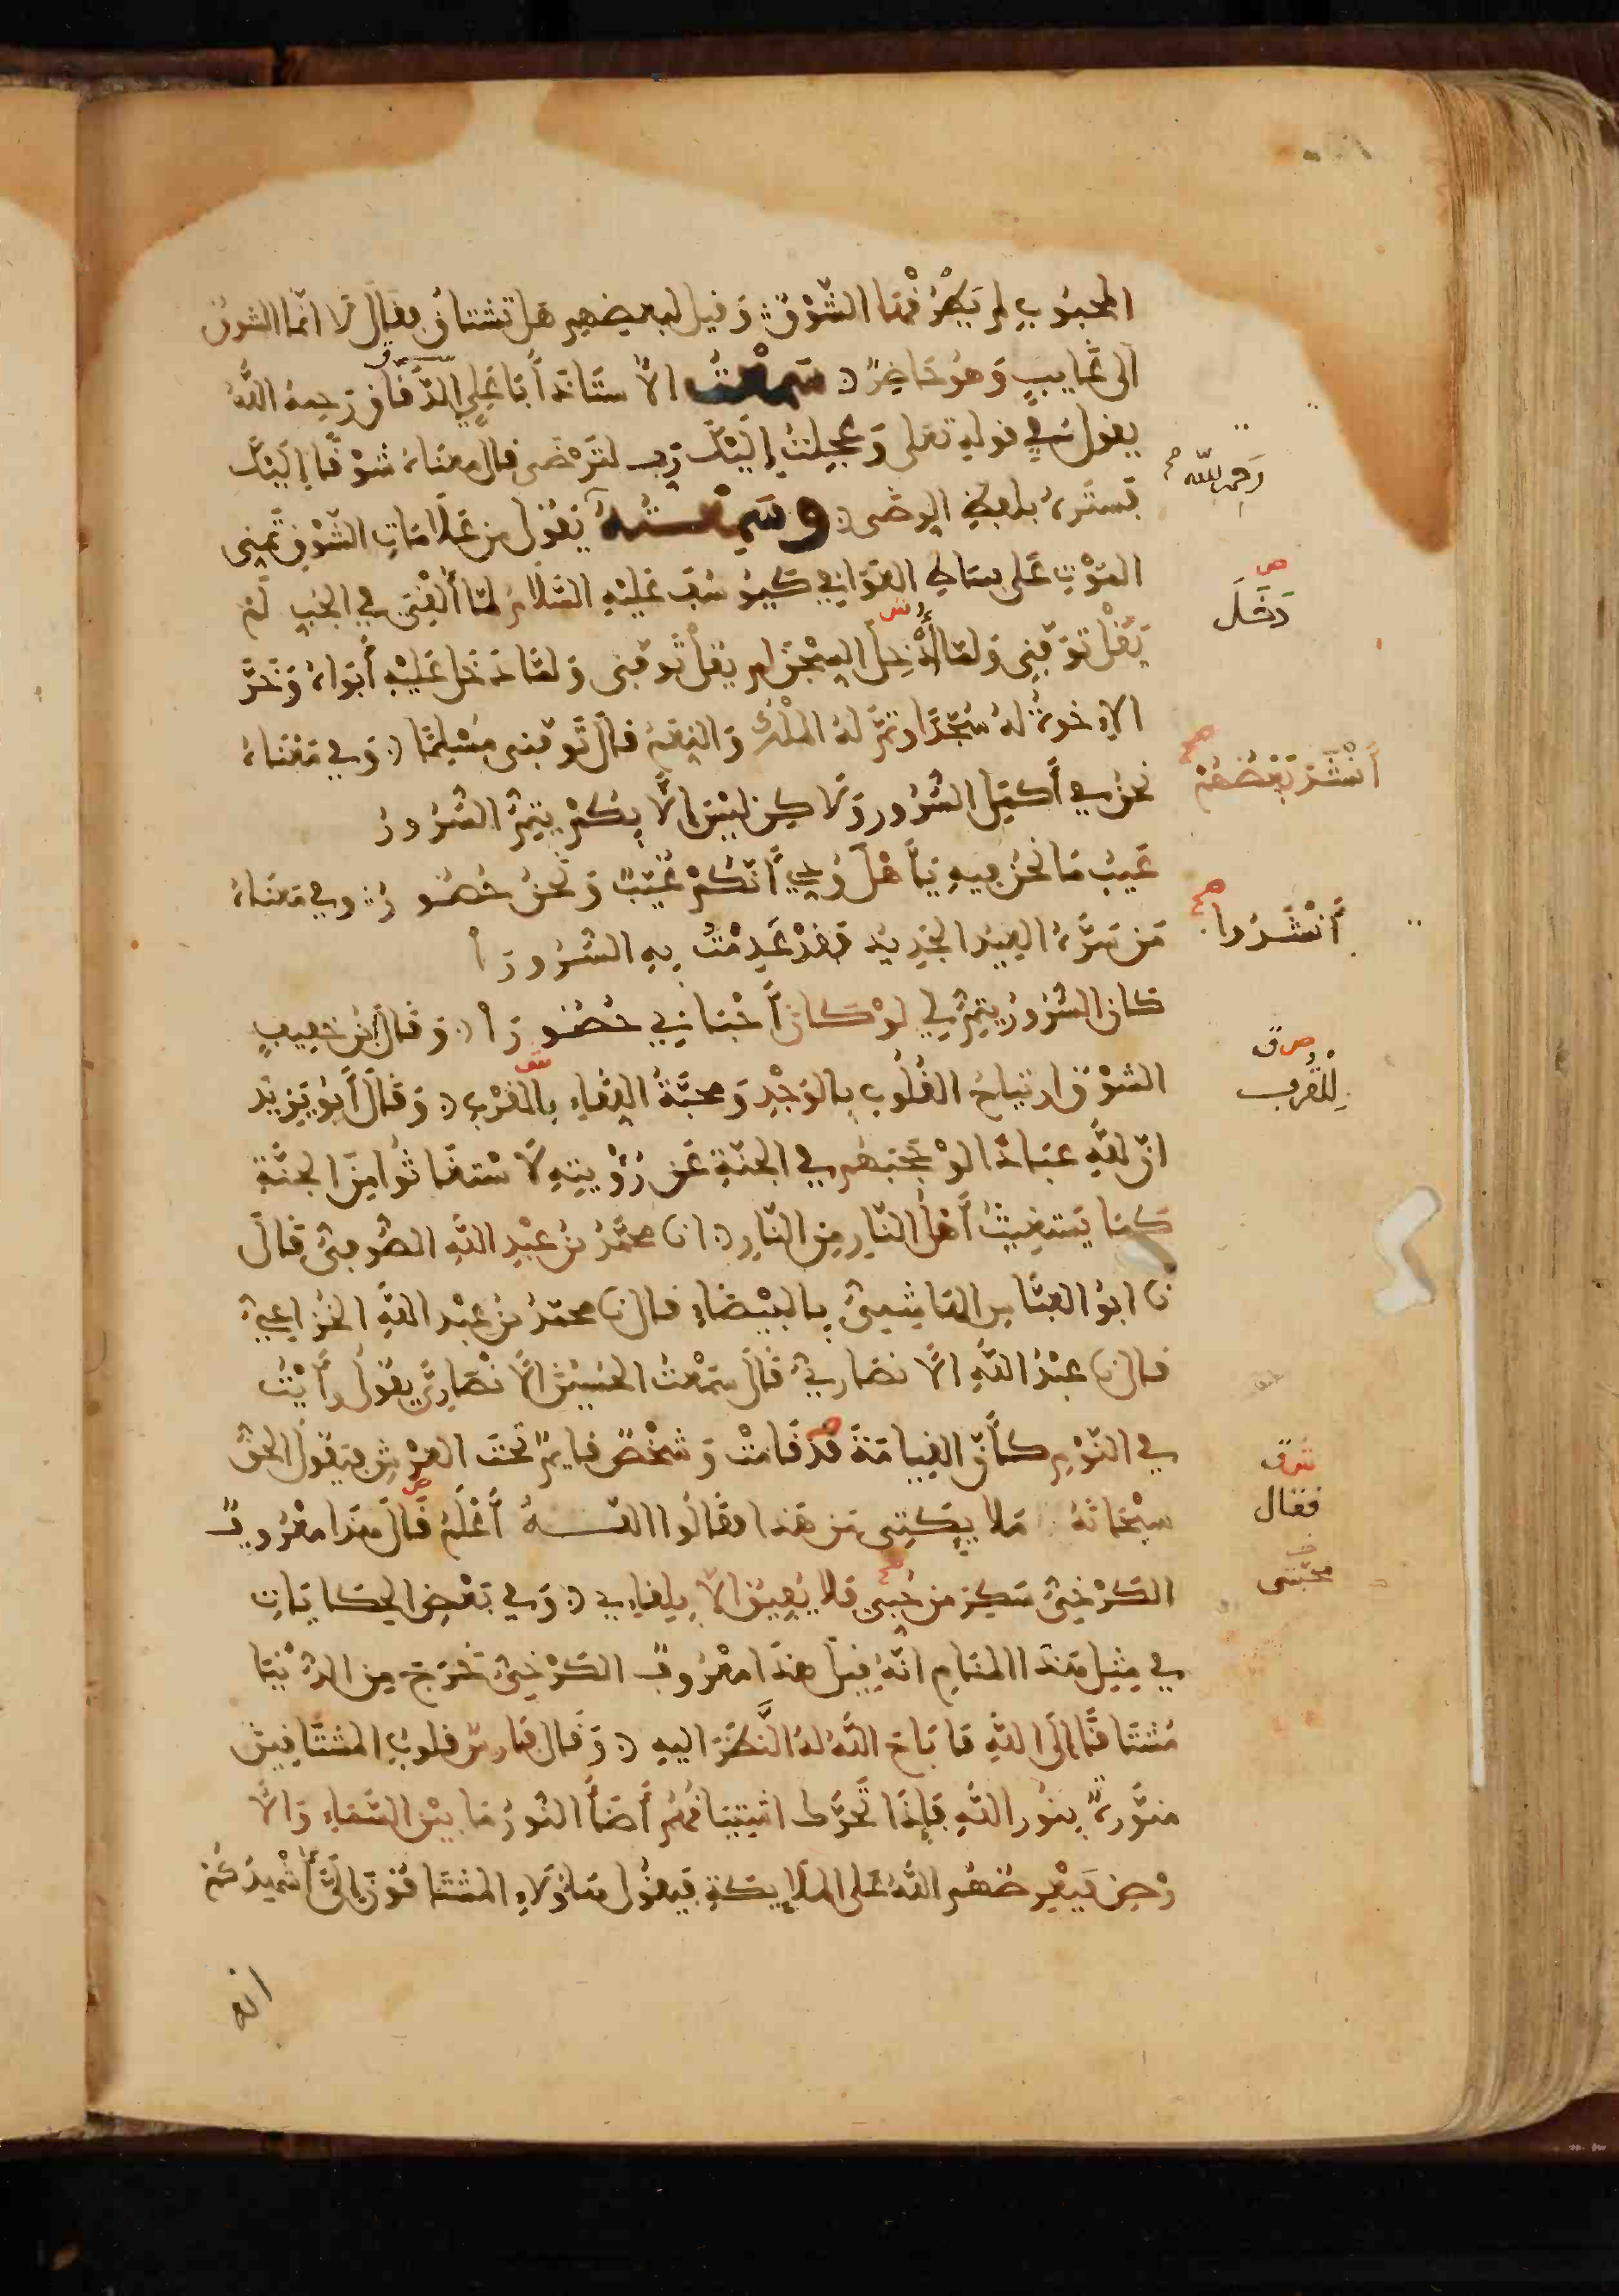 المحبوب لم يكن ثمّ الشَّوْق وَقيل لبعضهم هل تشتاق فقال لا انّما الشوق
الى غايب وَهو حَاضِرٌ سَمعْتُ الأستاذ أبا علي الدقّاق رَحمه اللّه
يقول في قوله تعلى وَعَجِلتُ إِلَيْكَ رَبِّ لتَرْضَى قال معناه شوقًا إليْكَ
فسَتَره بلفظ الرضى وسَمِعْتُهُ يَقول من عَلامَاتِ الشَّوْق تَمنّى
المَوْت عَلى بساط العَوَافي كيوسُف عَليْهِ السَّلام لمّا ألقى في الجُبّ لَمْ
يَقُلْ تَوَفّنى وَلمّا أُدْخِل السّجن لم يَقل تَوفّنى وَلمّا دَخل عَليْه أبَوَاه وَخَرَّ
الإخوة له سُجّدًا وتَمَّ له المُلْك وَالنِّعَم قال تَوَفّنى مُسْلِمًا وَفي مَعْناه
نحن في أكمل السُّرُور وَلاكن ليْس إلّا بكمْ يتمّ السُّرُورُ
عَيْب مَا نحْن فيه يَا أهل وُدّي أنّكمْ غُيّبٌ وَنحْن حُضُورُ وفي معناه
مَن سَرَّه العِيد الجَدِيد فقَدْ عَدِمْتُ بِه السُّرُورَا
كان السُّرُورُ يتِمّ لي لوْ كان أحْبَابي حُضُورَا وَقال ابن خفيفٍ
الشوْق ارتياح القُلُوب بالوَجْدِ وَمحبَّةُ اللّقاءِ بالقُرْب وَقال أبُو يَزيد
انّ للّه عبَادًا لوْ حَجَبَهُم في الجنّة عَن رُؤْيتِهِ لاسْتغَاثُوا مِنَ الجنَّةِ
كمَا يَستغيثُ أهل النّار مِن النّار انا محمَّدُ بنُ عَبْدِ اللّه الصُّوفيّ قالَ
نا ابو العبّاس الهاشميّ بالبيْضَاء قال نا محمّدُ بن عَبْد اللّه الخُزاعيّ
قال نا عبْدُ اللّه الأنصاريّ قال سَمعْتُ الحُسَيْن الأنْصَاريّ يقُول رأيْتُ
في النّوْم كأنّ القيامَةَ قدْ قامَتْ وَشخْصٌ قايمٌ تحْتَ العرْش فيَقُول الحقّ
سبْحَانَهُ مَلايِكتى مَن هَذا فقَالُوا اللّه أعْلَمُ قَال هَذا مَعْرُوفٌ
الكَرْخيّ سَكِرَ من حُبّي فلا يُفِيق إلّا بلقاءي وَفي بَعْض الحِكايَاتِ
في مِثل هَذا المنَام انّهُ قيل هَذَا مَعْرُوفٌ الكَرْخيّ خَرَجَ مِن الدُّنْيَا
مُشتَاقًا الى اللّهِ فَابَاحَ اللّه لَهُ النَّظَرَ اليهِ وَقال فارسٌ قلوبُ المشتَاقِين
منَوَّرَة بنُور اللّه فَإذا تَحَرَّك اشْتِيَاقُهُمْ أضَاء النُّورُ مَا بيْن السَّمَاءِ وَالأ
رْضِ فيَعْرِضُهُم اللّه عَلى المَلايِكَةِ فيَقُول هَاؤُلاءِ المُشتَاقُونَ إلَيَّ أُشْهِدُكمْ
انّى
رَحمه اللّه صح
ص
دَخَلَ
أنْشدَ بَعْضُهُمْ صح
أنْشَدُوا صح
ص ق
لِلْقُرب
ش ق
فقال
محبّتى